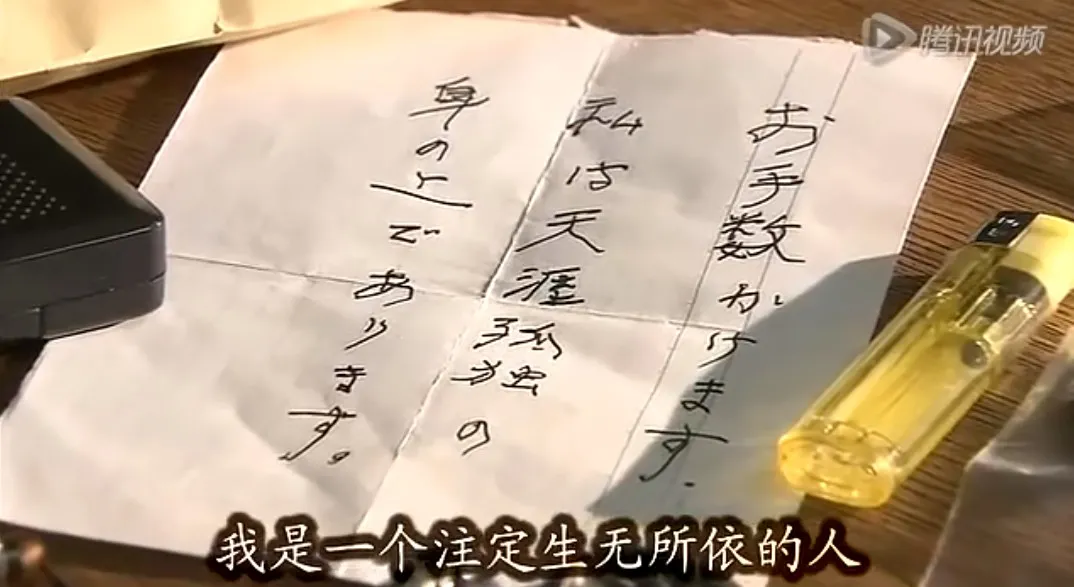 腾讯视频
お手数かけます.
私は天涯孤独の
身の上であります。
我是一个注定生无所依的人